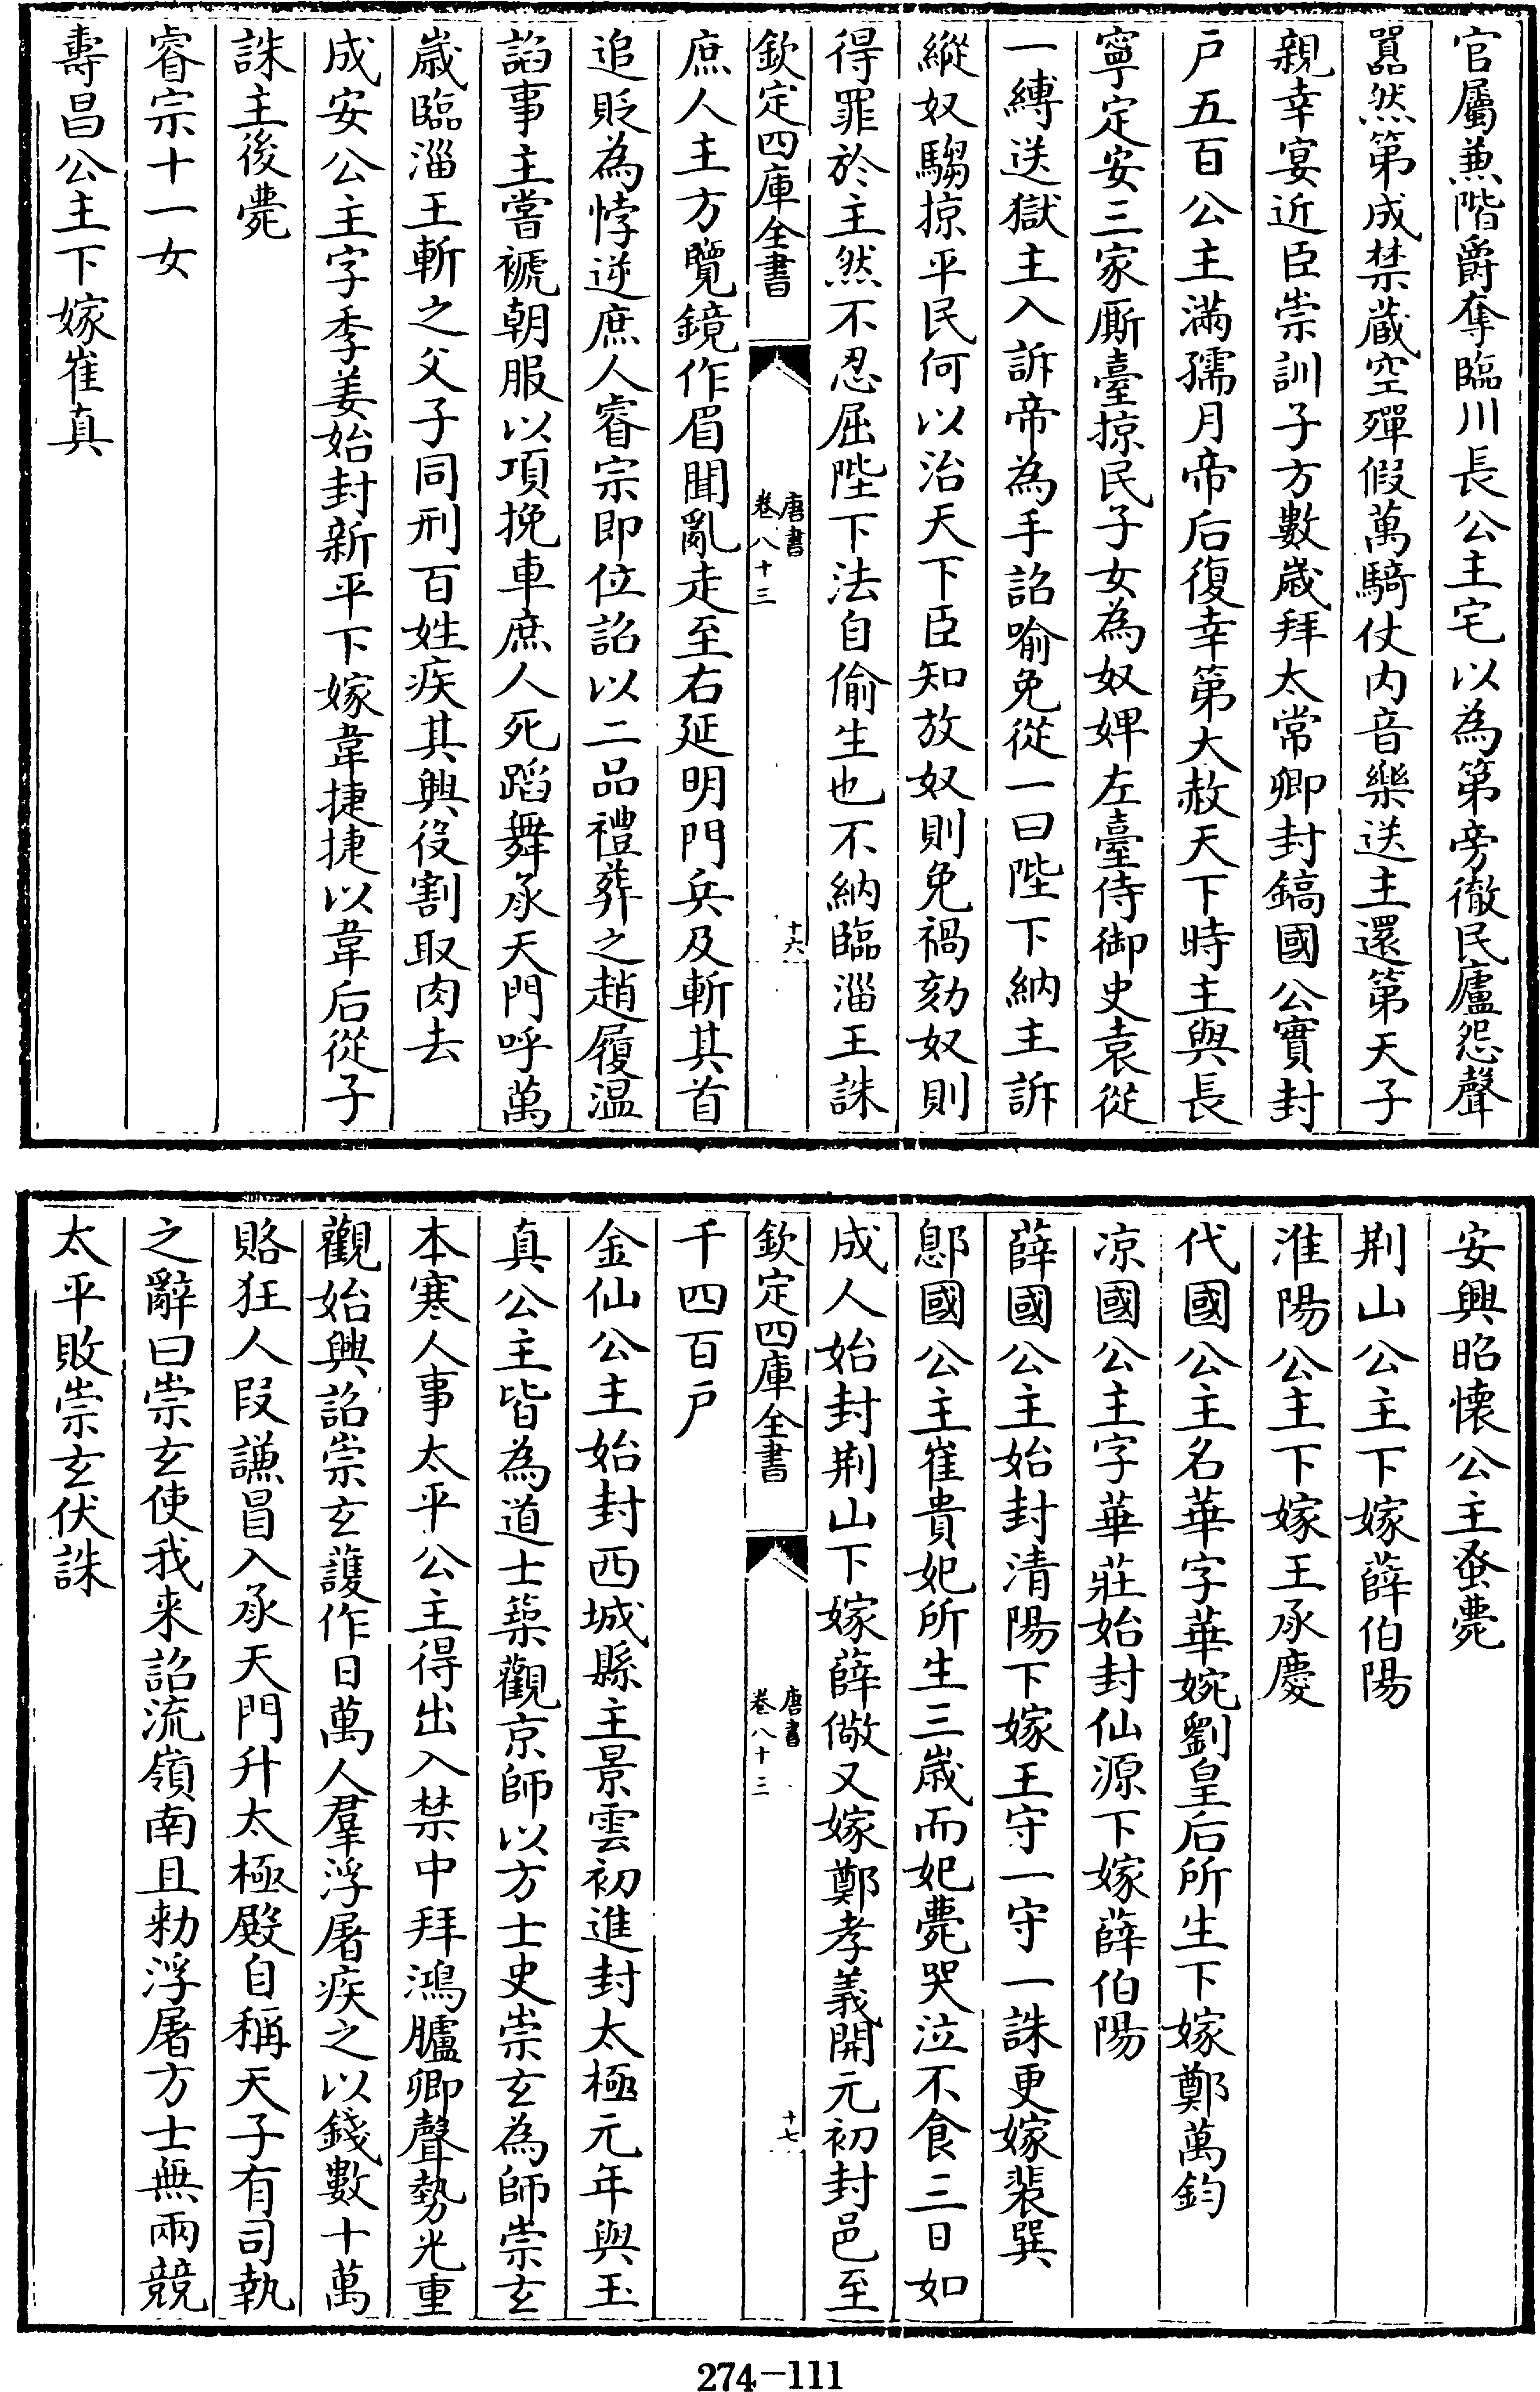 官屬兼階爵奪臨川長公主宅以為第旁徹民廬怨聲
囂然第成禁蔵空殫假萬騎仗内音樂送主還第天子
親幸宴近臣崇訓子方數歳拜太常卿封鎬國公實封
户五百公主滿孺月帝后復幸第大赦天下時主與長
寧定安三家厮臺掠民子女為奴婢左臺侍御史袁從
一縛送獄主入訴帝為手詔喻免從一曰陛下納主訴
縱奴騶掠平民何以治天下臣知放奴則免禍劾奴則
得罪於主然不忍屈陛下法自偷生也不納臨淄王誅
欽定四庫全書
唐書
卷八十三
十六
庶人主方覽鏡作眉聞亂走至右延明門兵及斬其首
追貶為悖逆庶人睿宗即位詔以二品禮葬之趙履温
諂事主嘗褫朝服以項挽車庶人死蹈舞承天門呼萬
歳臨淄王斬之父子同刑百姓疾其興役割取肉去
成安公主字季姜始封新平下嫁韋捷捷以韋后從子
誅主後薨
睿宗十一女
壽昌公主下嫁崔真
安興昭懐公主蚤薨
荆山公主下嫁薛伯陽
淮陽公主下嫁王承慶
代國公主名華字華婉劉皇后所生下嫁鄭萬鈞
凉國公主字華莊始封仙源下嫁薛伯陽
薛國公主始封清陽下嫁王守一守一誅更嫁裴巽
鄎國公主崔貴妃所生三歳而妃薨哭泣不食三日如
成人始封荆山下嫁薛儆又嫁鄭孝義開元初封邑至
欽定四庫全書
唐書
卷八十三
十七
千四百户
金仙公主始封西城縣主景雲初進封太極元年與玉
真公主皆為道士築觀京師以方士史崇玄為師崇玄
本寒人事太平公主得出入禁中拜鴻臚卿聲勢光重
觀始興詔崇玄護作日萬人羣浮屠疾之以錢數十萬
賂狂人段謙冒入承天門升太極殿自稱天子有司執
之辭曰崇玄使我来詔流嶺南且勅浮屠方士無兩競
太平敗崇玄伏誅
274-111